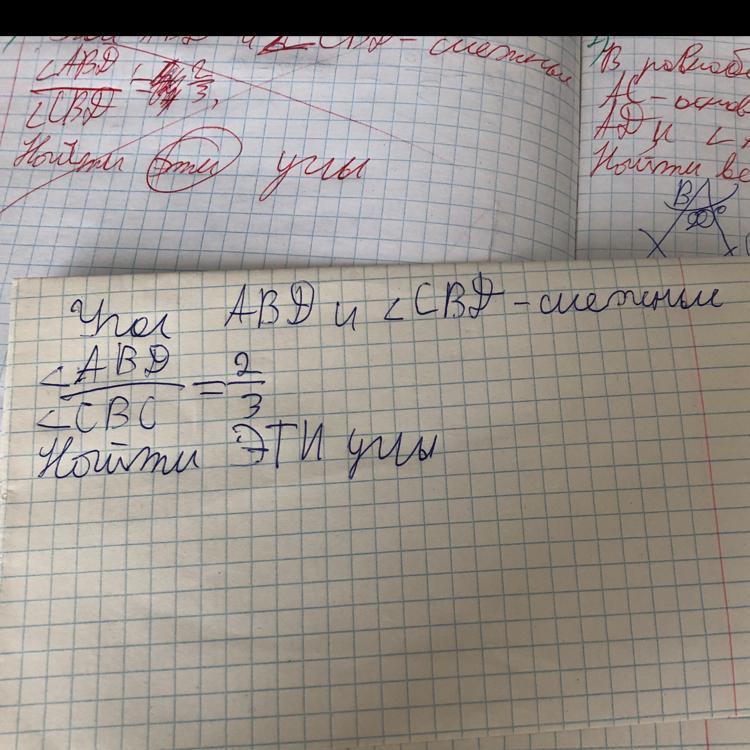 ABD и ∠CBD - смежные
∠ABD
∠CBD
= 2
3,
Найти эти углы
В равноб
АС - основ
AD и ∠
Найти ве
B
90°
Угол ABD и ∠CBD - смежные
∠ABD
∠CBC
= 2
3
Найти ЭТИ углы